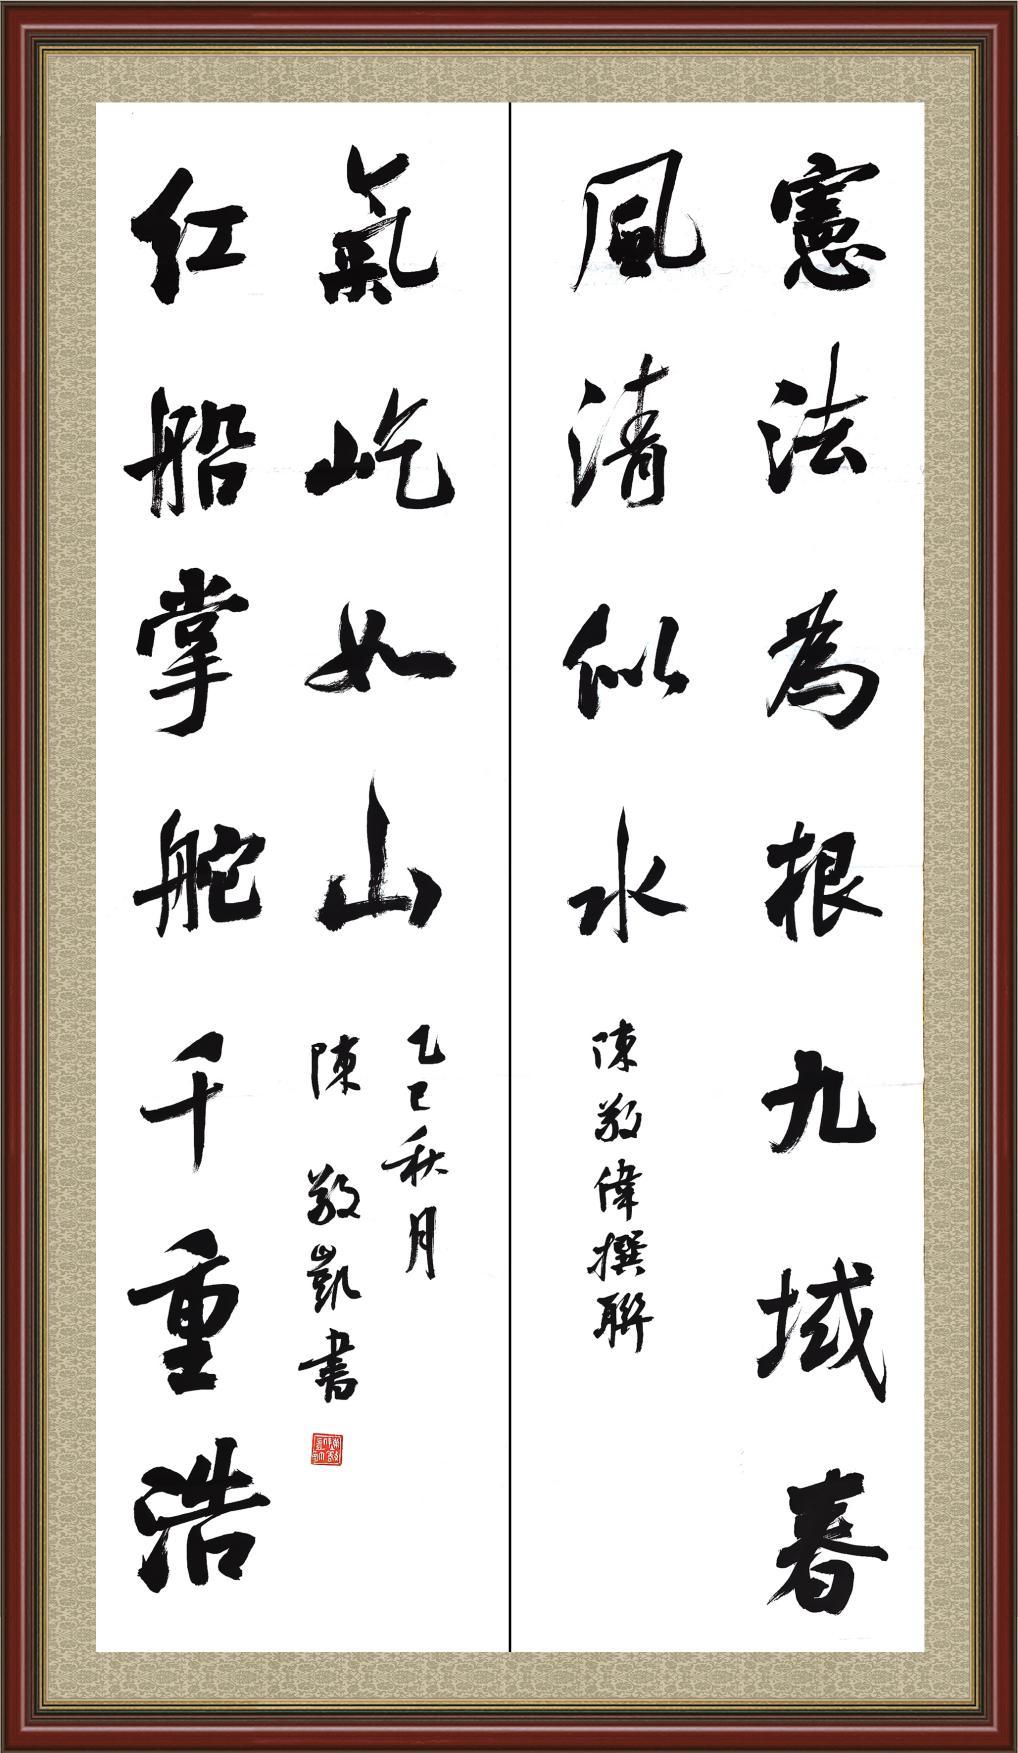 憲法為根九域春
風清似水
陳敬偉撰聯
红船掌舵千重浩
氣屹如山
乙巳秋月
陳敬凱書